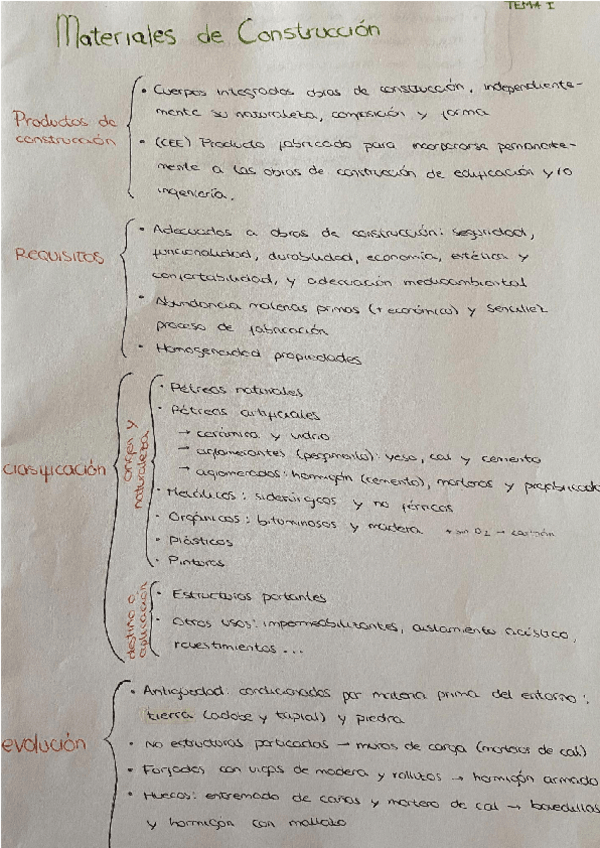 TEMA I
Materiales de Construcción
Productos de
construcción
· Cuerpos integrados obras de construcción, independiente-
mente su naturaleza, composición y forma
· (CEE) Producto fabricado para incorporarse permanente-
mente a las obras de construcción de edificación y/o
ingeniería.
REQUISITOS
· Adecuados a obras de construcción: seguridad,
funcionalidad, durabilidad, economía, estética y
confortabilidad, y adecuación medioambiental
· Abundancia materias primas (+ económico) y sencillez
proceso de fabricación
· Homogeneidad propiedades
clasificación
origen y
naturaleza
· Pétreos naturales
· Pétreos artificiales
→ cerámica y vidrio
→ aglomerantes (pegamento): yeso, cal y cemento
→ aglomerados: hormigón (cemento), morteros y prefabricado
· Metálicos: siderúrgicos y no férricos
· Orgánicos: bituminosos y madera + sin O2 → carbón
· Plásticos
· Pinturas
destino o
aplicación
· Estructuras portantes
· Otros usos: impermeabilizantes, aislamiento acústico,
revestimientos ...
evolución
· Antigüedad: condicionados por materia prima del entorno:
tierra (adobe y tapial) y piedra
· No estructuras porticadas → muros de carga (morteros de cal)
· Forjados con vigas de madera y rollizos → hormigón armado
· Huecos: entramado de cañas y mortero de cal → bovedillas
y hormigón con mallazo